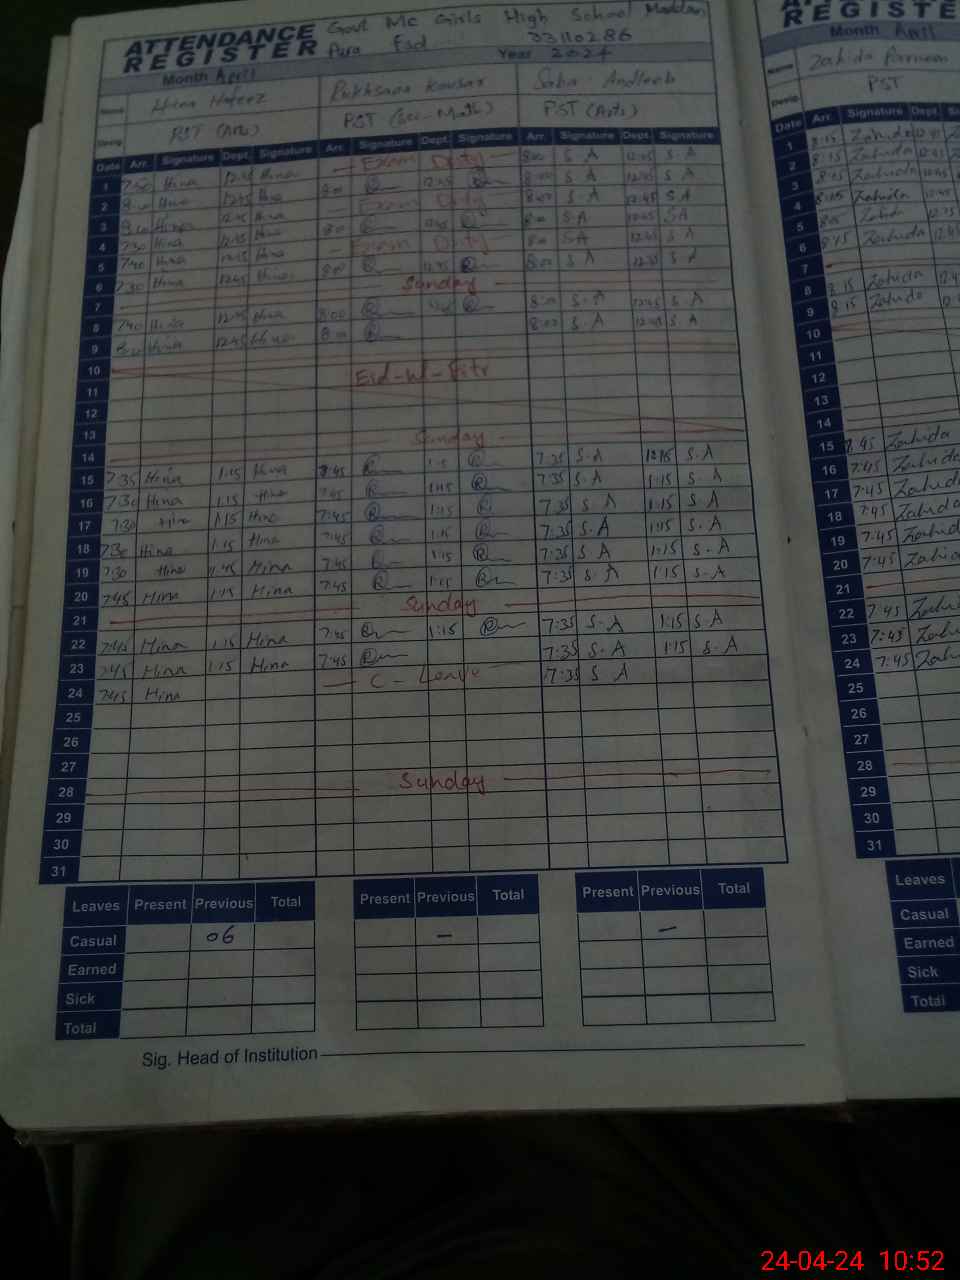 ATTENDANCE REGISTER Govt Mc Girls High School Maddan
Pura Fsd 33110286
Month April Year 2024
Name Hina Hafeez Rukhsana Kousar Saba Andleeb
Desig PST (Arts) PST (Sci-Math) PST (Arts)
Date Arr. Signature Dept. Signature Arr. Signature Dept. Signature Arr. Signature Dept. Signature
1 7:30 Hina 12:45 Hina Exam Duty 8:00 S.A 12:45 S.A
2 Hina 12:45 Hina 8:00 R 12:45 R 8:00 S.A 12:45 S.A
3 Hina 12:45 Hina Exam Duty 8:00 S.A 12:45 S.A
4 7:30 Hina 12:45 Hina 8:00 R R 8:00 S.A 12:45 S.A
5 7:40 Hina 12:45 Hina Exam Duty 8:00 S.A 12:45 S.A
6 7:30 Hina 12:45 Hina 8:00 R 12:45 R 8:00 S.A S.A
7 Sunday
8 7:40 Hina 12:45 Hina 8:00 R R 8:00 S.A 12:45 S.A
9 Hina 12:45 Hina 8:00 R 8:00 S.A 12:45 S.A
10
11 Eid-ul-Fitr
12
13
14 Sunday
15 7:35 Hina 1:15 Hina 7:45 R 1:15 R 7:35 S.A S.A
16 7:30 Hina 1:15 Hina 7:45 R 1:15 R 7:35 S.A 1:15 S.A
17 7:30 Hina 1:15 Hina 7:45 R 1:15 R 7:35 S.A 1:15 S.A
18 7:30 Hina 1:15 Hina 7:45 R 1:15 R 7:35 S.A 1:15 S.A
19 7:30 Hina Hina 7:45 R 1:15 R 7:35 S.A 1:15 S.A
20 7:45 Hina 1:15 Hina 7:45 R 1:15 R 7:35 S.A 1:15 S.A
21 Sunday
22 7:45 Hina 1:15 Hina 7:45 R 1:15 R 7:35 S.A 1:15 S.A
23 7:45 Hina 1:15 Hina 7:45 R 7:35 S.A 1:15 S.A
24 7:45 Hina C-Leave 7:35 S.A
25
26
27
28 Sunday
29
30
31
Leaves Present Previous Total Present Previous Total Present Previous Total
Casual 06 - -
Earned
Sick
Total
Sig. Head of Institution
REGISTE
Month April
Name Zahida Parveen
Desig PST
Date Arr. Signature Dept.
1 8:15 Zahida
2 8:15 Zahida
3 8:15 Zahida
4 Zahida
5 Zahida 12:45
6 8:15 Zahida 12:4
7
8 8:15 Zahida
9 8:15 Zahida
10
11
12
13
14
15 7:45 Zahida
16 7:45 Zahida
17 7:45 Zahida
18 7:45 Zahid
19 7:45 Zahid
20 7:45 Zahid
21
22 7:45 Zah
23 7:45 Zah
24 7:45 Zah
25
26
27
28
29
30
31
Leaves
Casual
Earned
Sick
Total
24-04-24 10:52